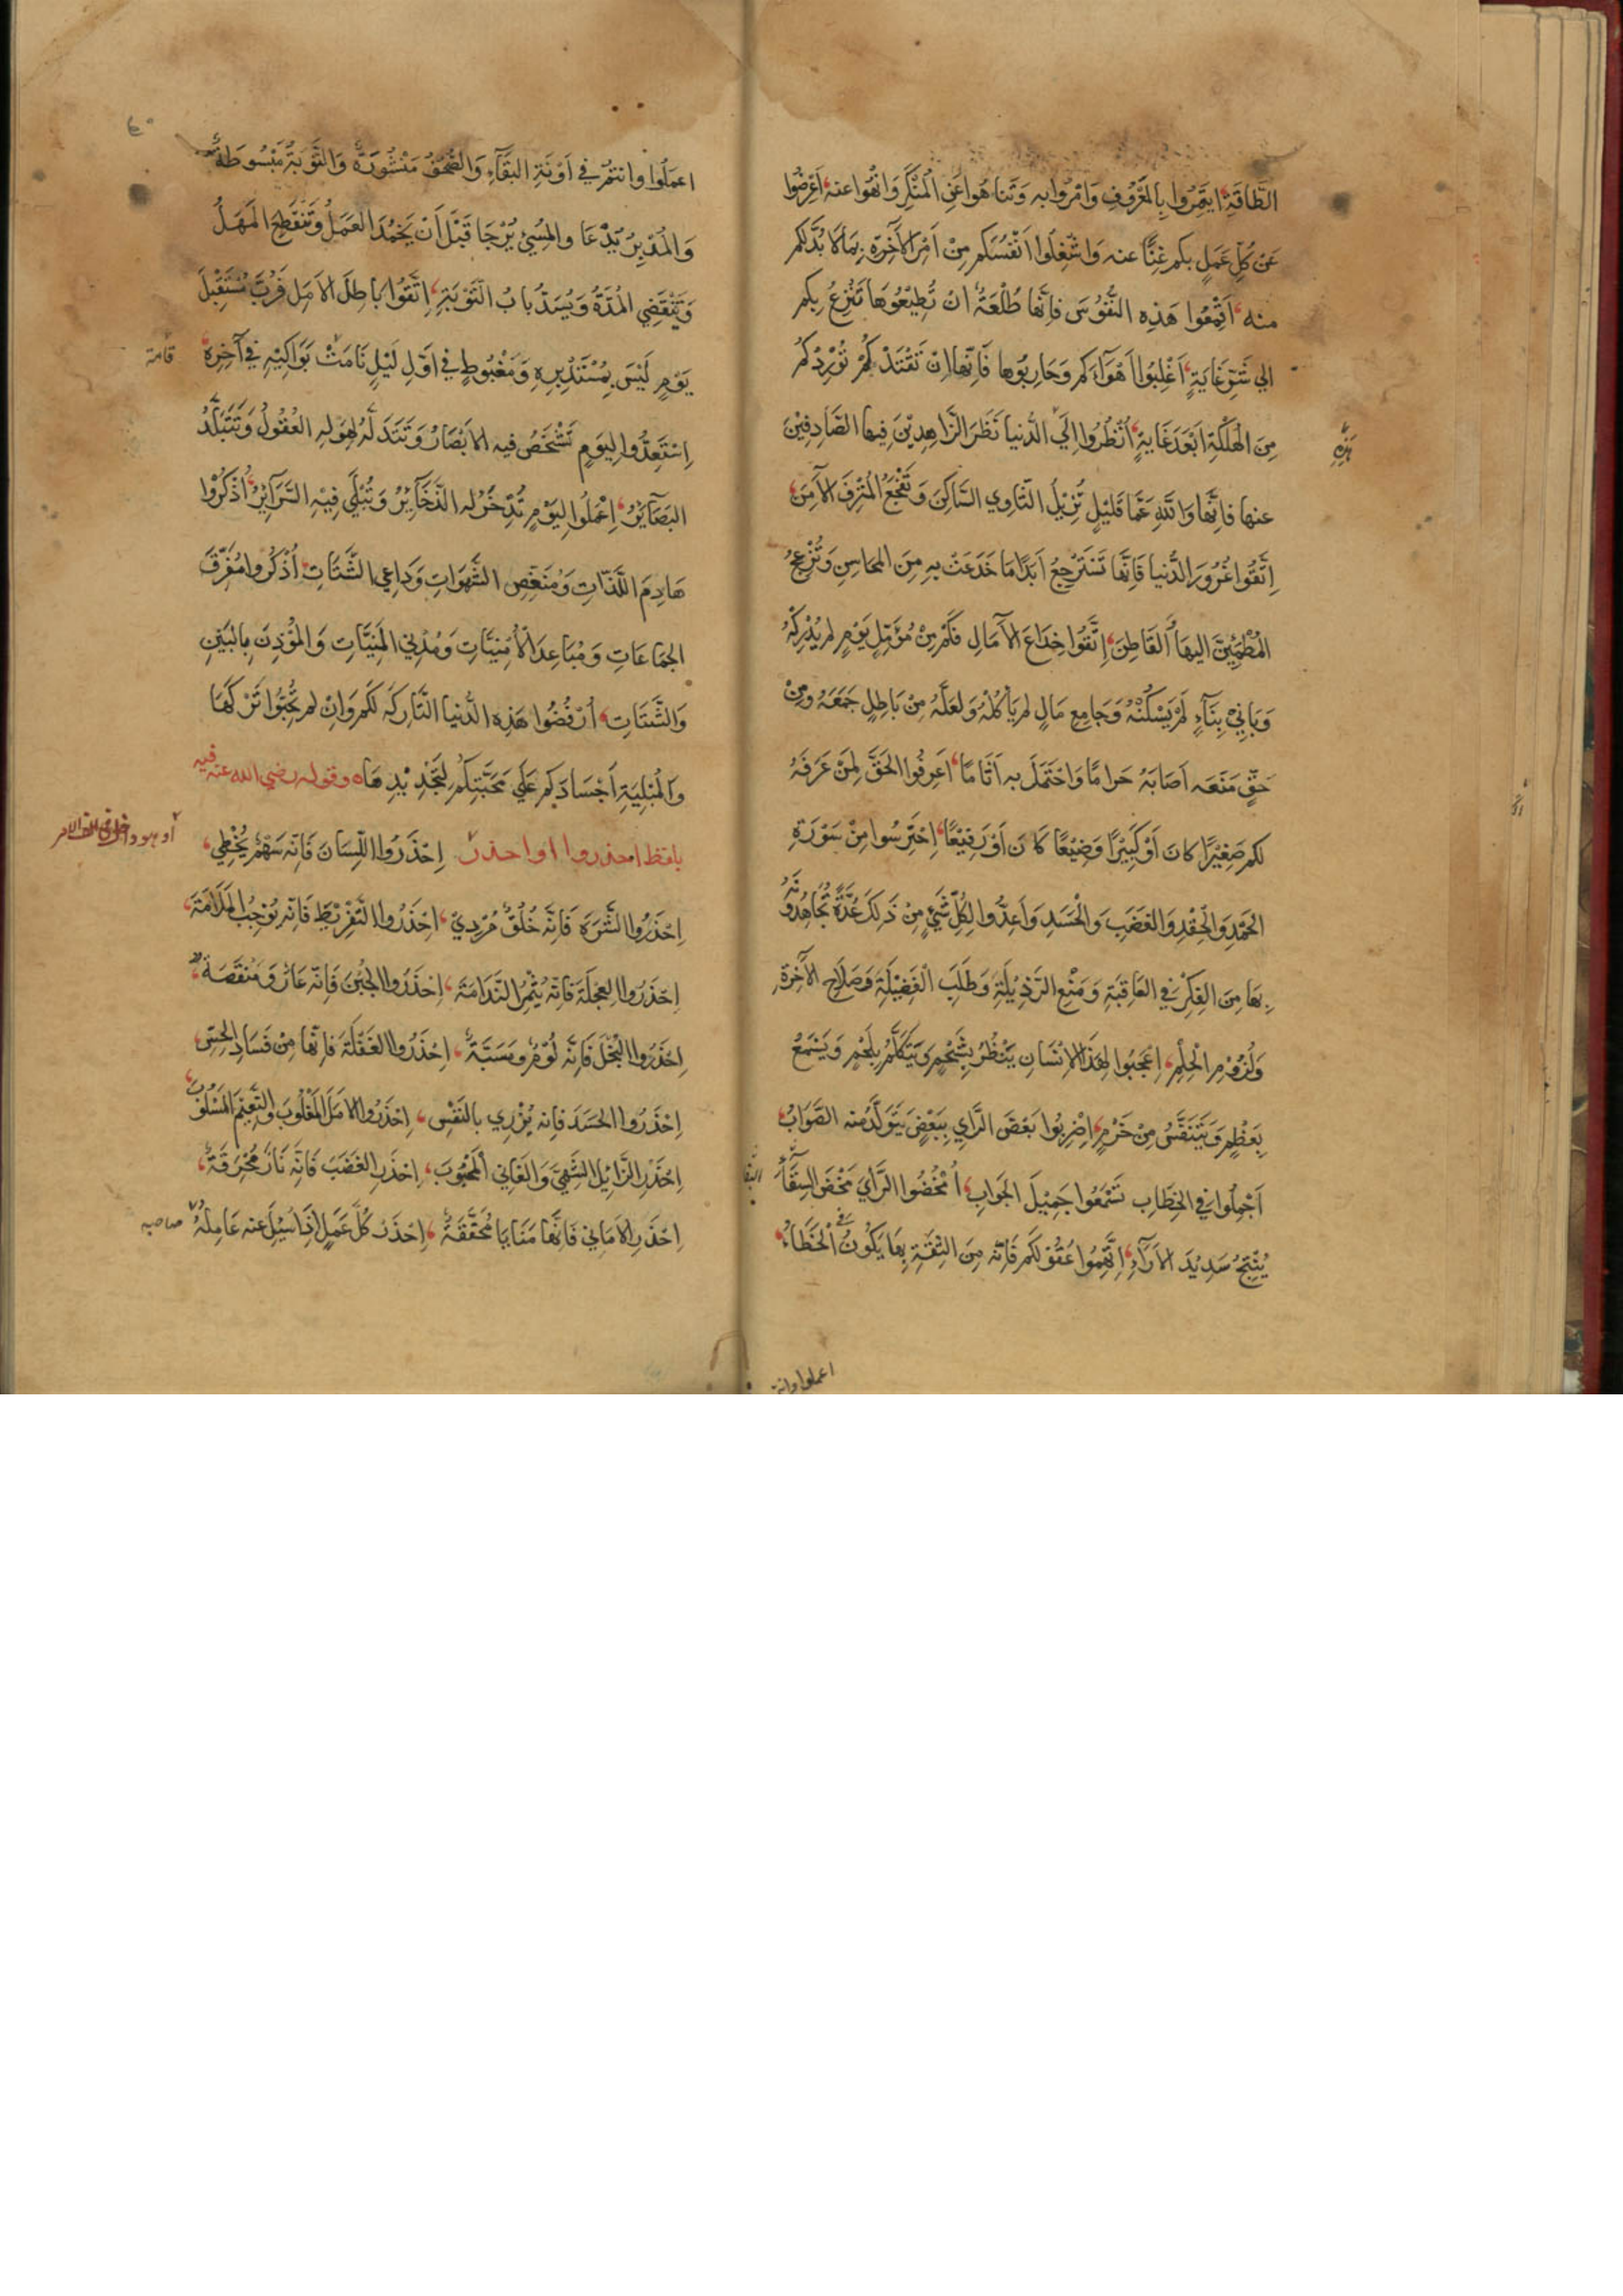 الطَّاقَةِ، ايتَمِرُوا بِالمَعْرُوفِ وَامُرُوا به وَتَنَاهَوا عَنِ الْمُنْكَرِ وَانْهُوا عنه، اَعْرِضُوا
عَنْ كُلِّ عَمَلٍ بكم غِنًّا عنه وَاشْغِلُوا اَنْفُسَكم مِنْ اَمْرِ الآخِرَةِ بِمَا لا بُدَّ لكم
منه، اَقْمِعُوا هَذِه النُّفُوسَ فاِنَّهَا طُلْعَةٌ اِنْ تُطِيْعُوهَا تَنْزِعُ بِكم
اِلي شَرِّ غَايَةٍ، اَغْلِبُوا اَهْوَآءَكم وَحَارِبُوها فَاِنَّها اِنْ تَقْتَدْكُمْ تُوْرِدْكُمْ
مِنَ الْهَلَكَةِ اَبْعَدَ غَايَةٍ، اُنْظُرُوا اِلَي الدُّنيا نَظَرَ الزَّاهِدِيْنَ فِيها الصَّادِفِيْنَ
هَذِهِ
عنها فاِنَّها وَاللَّهِ عَمَّا قَلِيْلٍ تُزِيْلُ الثَّاوِي السَّاكِنَ وَتَفْجَعُ المُتْرِفَ الآمِنَ،
اِتَّقُوا غُرُورَ الدُّنيا فَاِنَّهَا تَسْتَرْجِعُ اَبَدًا مَا خَدَعَتْ بِهِ مِنَ المحَاسِنِ وَتُزْعِجُ
المُطْمَئِنَّ اليهَا القَاطِنَ، اِتَّقُوا خِدَاعَ الآمَالِ فَكَمْ مِنْ مُؤَمِّلِ يَوْمٍ لم يُدْرِكْهُ
وَبَانِيْ بِنَآءٍ لَمْ يَسْكُنْهُ وَجَامِعِ مَالٍ لم يَأكُلْهُ وَلَعَلَّهُ مِنْ بَاطِلٍ جَمَعَهُ وَمِنْ
حَقٍّ مَنَعَه اَصَابَهُ حَرامًا وَاحْتَمَلَ به اَثَامًا، اَعرِفُوا الحَقَّ لِمَنْ عَرَفَهُ
لكم صَغِيْرًا كانَ اَوْ كَبِيْرًا وَضِيْعًا كَانَ اَوْ رَفِيْعًا، اِحْتَرِسُوا مِنْ سَوْرَةِ
الحَمْدِ وَالْحِقْدِ وَالغَضَبِ وَالْحَسَدِ وَاَعِدُّوا لِكُلِّ شَيْءٍ مِنْ ذَلِكَ عُدَّةً تُجَاهِدُونَهُ
بِهَا مِنَ الفِكْرِ في العَاقِبَةِ وَمَنْعِ الرَّذِيْلَةِ وَطَلَبِ الْفَضِيْلَةِ وَصَلَاحِ الآخِرَةِ
وَلُزُوْمِ الْحِلْمِ، اِعْجَبُوا لِهَذَا الإنْسَانِ يَنْظُرُ بِشَحْمٍ وَيَتَكَلَّمُ بِلَحْمٍ وَيَسْمَعُ
بِعَظْمٍ وَيَتَنَفَّسُ مِنْ خَرْمٍ، اِضْرِبُوا بَعْضَ الرَّايِ بِبَعْضٍ يَتَوَلَّدُ منه الصَّوَابُ،
اَجْمِلُوا في الخِطَابِ تَسْمَعُوا جَمِيْلَ الجَوَابِ، اُمْخُضُوا الرَّأيَ مَخْضَ السِّقَآءِ
يُنْتِجُ سَدِيْدَ الاَرَآءِ، اِتَّهِمُوا عُقُوْلَكم فَاِنَّه مِنَ الثِّقَةِ بِهَا يَكُونُ الْخَطَاءُ،
اعملوا وانتم
اعمَلُوا وانتُمْ في آوِنَةِ البَقَآءِ وَالصُّحُفُ مَنْشُورَةٌ وَالتَّوبَةُ مَبْسُوطَةٌ
وَالمُدْبِرُ يُدْعَا والمُسِيْءُ يُرْجَا قَبْلَ اَنْ يَخْمُدَ العَمَلُ وَتَنْقَطِعَ المَهَلُ
وَتَنْقَضِي المُدَّةُ وَيُسَدَّ بابُ التَّوْبَةِ، اِتَّقُوا باطِلَ الاَمَلِ فَرُبَّ مُسْتَقْبِلِ
يَوْمٍ لَيْسَ بِمُسْتَدْبِرِهِ وَمَغْبُوطٍ في اَوَّلِ لَيْلٍ نَامَتْ بَوَاكِيْهِ فِي آخِرِهِ،
قامة
اِسْتَعِدُّوا لِيَومٍ تَشْخَصُ فيه الاَبْصَارُ وَتَتَدَلَّهُ لِهَولِهِ العُقُولُ وَتَتَبَلَّدُ
البَصَآئِرُ، اِعْمَلُوا لِيَوْمٍ تُدْخَرُ له الذَّخَآئِرُ وَتُبْلَي فِيْهِ السَّرَآئِرُ، اُذْكُرُوا
هَادِمَ اللَّذَّاتِ وَمُنَغِّصَ الشَّهَوَاتِ وَدَاعِيَ الشَّتَاتِ، اُذْكُرُوا مُفَرِّقَ
الجَمَاعَاتِ وَمُبَاعِدَ الأُمْنِيَّاتِ وَمُدْنِي المَنِيَّاتِ وَالمُؤْذِنَ بِالبَيْنِ
وَالشَّتَاتِ، اُرْفُضُوا هَذِه الدُّنيا التَّارِكَةَ لَكم وَاِنْ لم تُحِبُّوا تَرْكَهَا
وَالمُبْلِيَةِ اَجْسَادَكم عَلَي مَحَبَّتِكُم لِتَجْدِيْدِهَا ه وقوله رضي الله عنه فيه
بلفظ احذروا او احذر اِحْذَرُوا اللِّسَانَ فَاِنّه سَهْمٌ يُخْطِي،
اِحْذَرُوا الشَّرَهَ فَاِنَّه خُلُقٌ مُرْدِيٌ، اِحْذَرُوا التَّفْرِيْطَ فَاِنّه يُوْجِبُ المَلَامَةَ،
اِحْذَرُوا العَجَلَةَ فَاِنّه يُثْمِرُ النَّدَامَةَ، اِحْذَرُوا الجُبْنَ فَاِنّه عَارٌ وَمَنْقَصَةٌ،
اِحْذَرُوا البُخْلَ فَاِنّه لُوْمٌ وَمَسَبَّةٌ، اِحْذَرُوا الغَفْلَةَ فاِنّها مِنْ فَسَادِ الحِسِّ،
اِحْذَرُوا الحَسَدَ فَاِنه يُزْرِي بالنَفْسِ، اِحْذَرُوا الاَمَلَ المَغْلُوبَ والنَّعِيْمَ المَسْلُوبَ،
اِحْذَرِ الزَّايِلَ الشَّهِيَّ وَالفَانِي المَحْبُوبَ، اِحْذَرِ الغَضَبَ فَاِنّه نَارٌ مُحْرِقَةٌ،
اِحْذَرِ الاَمَانِي فَاِنَّها مَنَايَا مُحَقَّقَةٌ، اِحْذَرْ كُلَّ عَمَلٍ اِذَا سُئِلَ عنه عَامِلُهُ
صاحبه